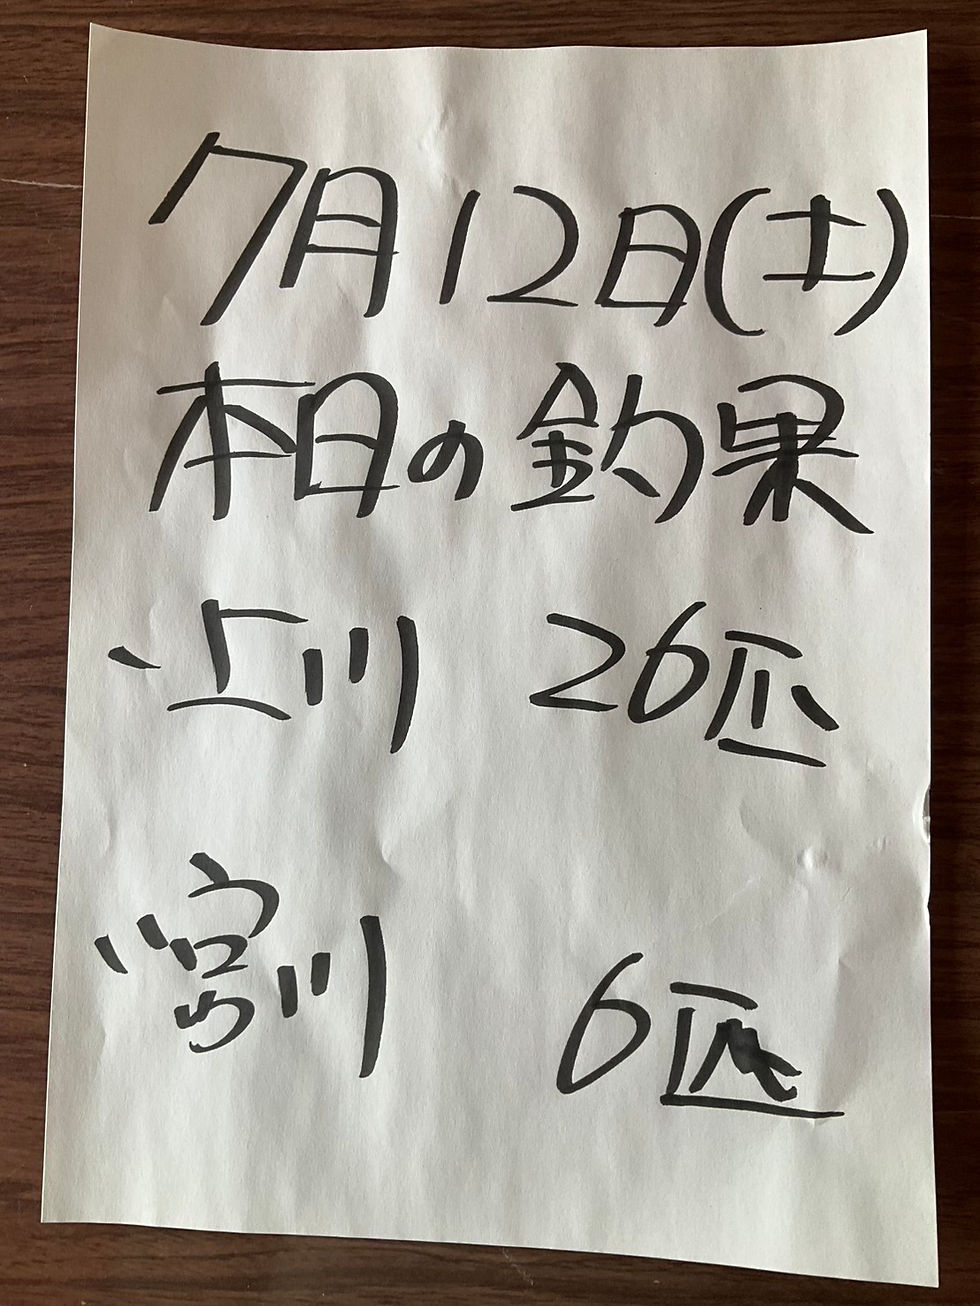 7月12日(土)
本日の釣果
上川 26匹
宮川 6匹